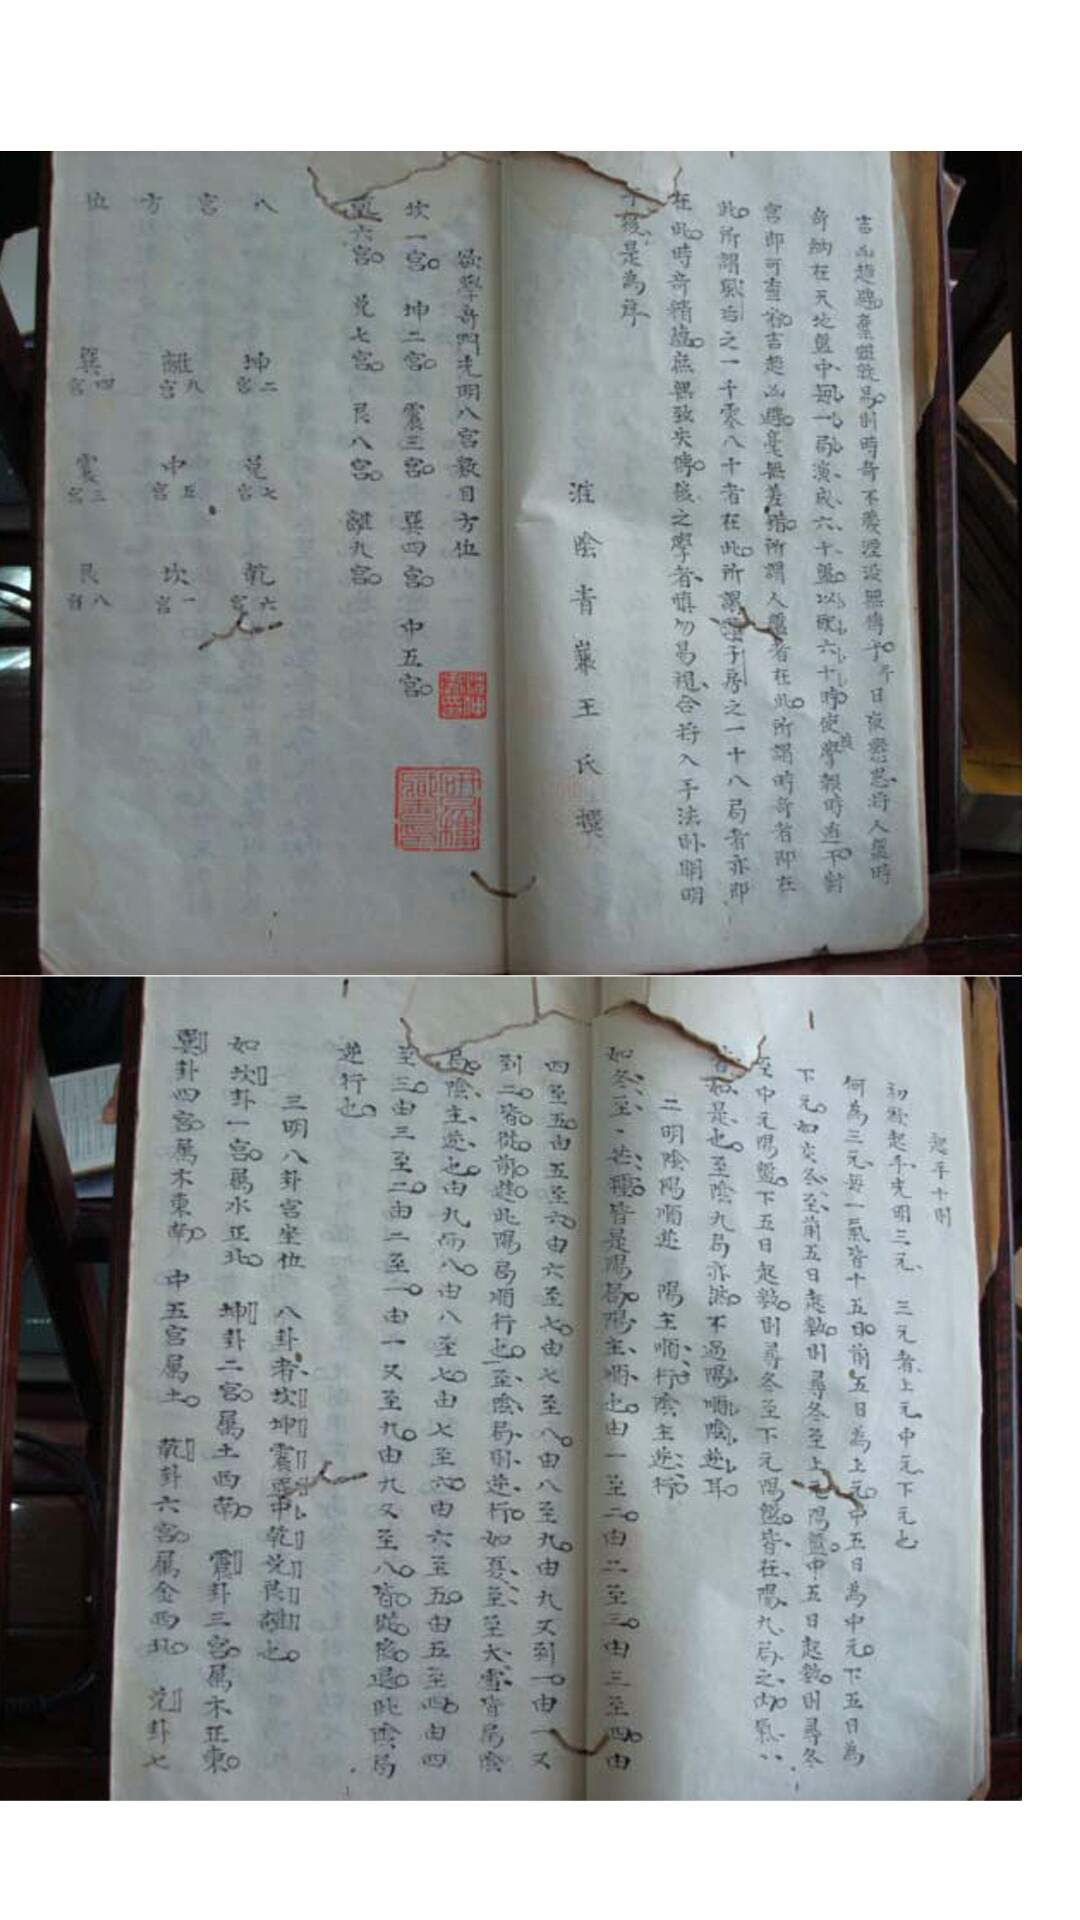 吉凶趨避棄難就易則時奇不處湮沒無傳乎奇日夜懸思將人盤時
奇納在天地盤中每一局演成六十盤以取六十時使後學報時迨不對
宮即可查驗吉趨凶避毫無差錯所謂人盤者在此所謂時奇者即在
此所謂風后之一千零八十者在此所謂子房之一十八局者亦即
在此時奇精蘊庶無致失傳後之學者慎勿易視合將入手法卧開明
于後是為序
淮陰青巖王氏撰
欲學奇門先明八宮數目方位
坎一宮 坤二宮 震三宮 巽四宮 中五宮
乾六宮 兌七宮 艮八宮 離九宮
八宮方位
坤二宮 兌七宮 乾六宮
離九宮 中五宮 坎一宮
巽四宮 震三宮 艮八宮
起手十則
初學起手先明三元 三元者上元中元下元也
何為三元每一氣皆十五日前五日為上元中五日為中元下五日為
下元如交冬至前五日起數則尋冬至上元陽盤中五日起數則尋冬
至中元陽盤下五日起數則尋冬至下元陽盤皆在陽九局之內氣
皆如是也至陰九局亦然不過陽順陰逆耳
二明陰陽順逆 陽主順行陰主逆行
如冬至芒種皆是陽局陽主順也由一至二由二至三由三至四由
四至五由五至六由六至七由七至八由八至九由九又到一由一又
到二皆從前進此陽局順行也至陰局則逆行如夏至至大雪皆屬陰
局陰主逆也由九而八由八至七由七至六由六至五由五至四由四
至三由三至二由二至一由一又至九由九又至八皆從後退此陰局
逆行也
三明八卦宮坐位 八卦者坎坤震巽中乾兌艮離也
如坎卦一宮屬水正北 坤卦二宮屬土西南 震卦三宮屬木正東
巽卦四宮屬木東南 中五宮屬土 乾卦六宮屬金西北 兌卦七